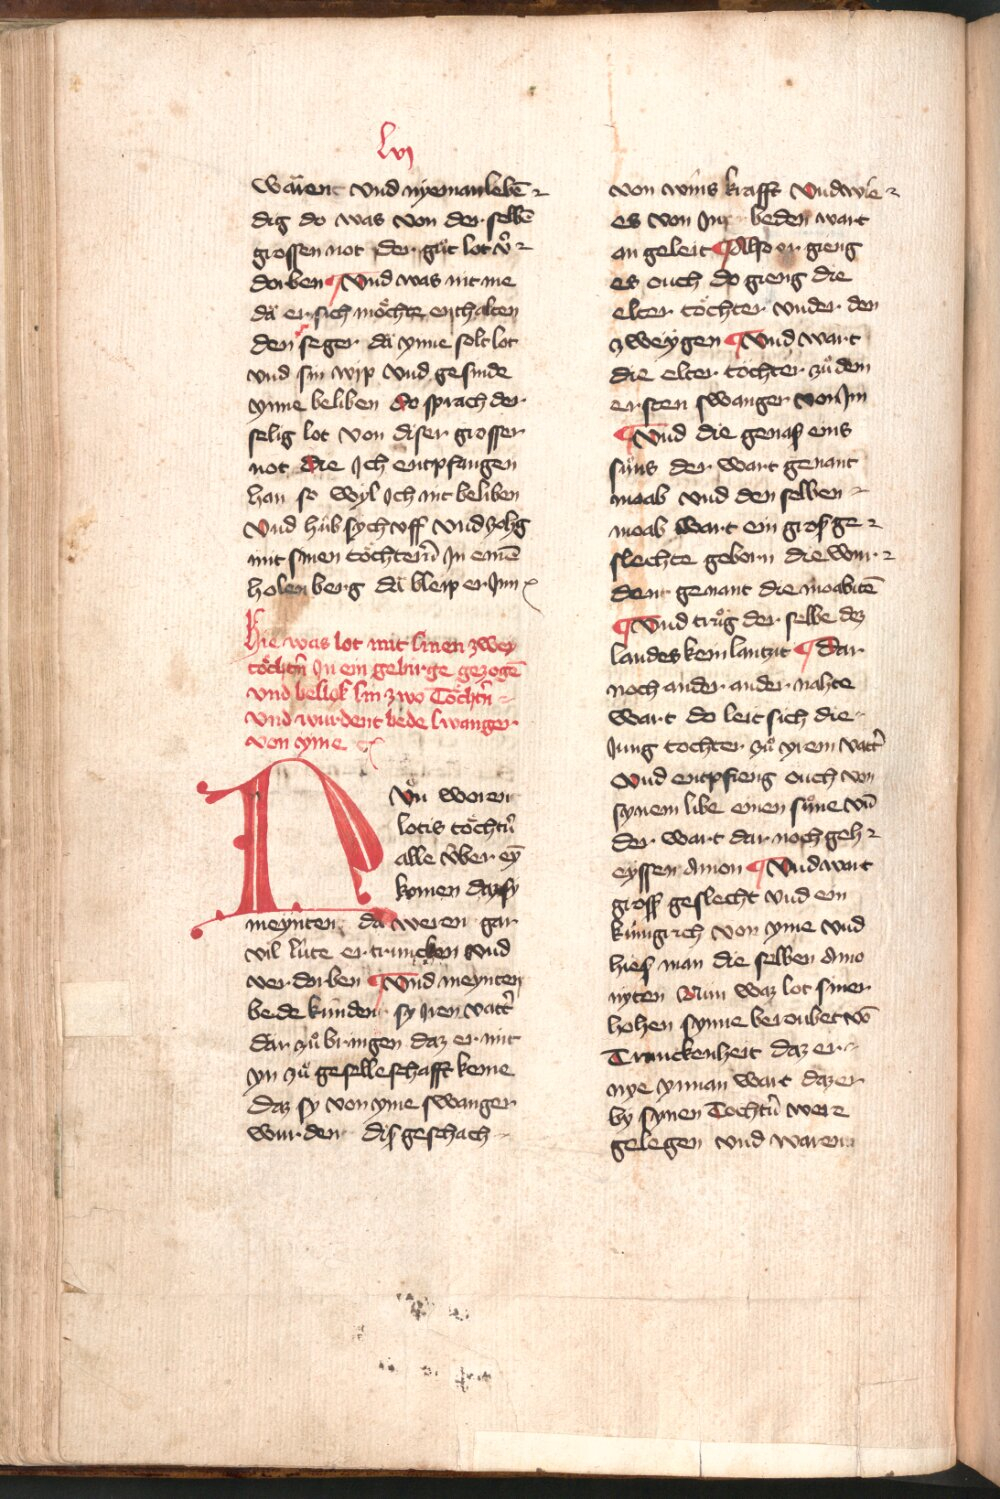 Lvj
Waᷝrent vnd nyeman lebē⸗
dig do was von der selbē
grossen not der guͦt lot v̉⸗
dorben ¶ Vnd was nit me
daͤ er sich moͤchte enthalten
den seger daͤ ynne solt lot
vnd sin wip vnd gesinde
ynne beliben do sprach der
selig lot von diser grosser
not die Jch entpfangen
han so wyl Jch nit beliben
Vnd huͦb sych vff vnd zohg
mit sinen toͤchterñ Jn einē
holen berg daͤ bleip er Jnn
Hie was lot mit sinen zwey
toͤchtn̄ Jn ein gebirge gezogē
vnd beslieff sin zwo Toͤchtn̄ ⸗
vnd wurdent bede swanger
von yme
Nvͦn weren
lotis toͤchtn̄
alle v̈ber eȳ
komen daz sy
meynten da weren gar
vil luͤte ertruncken vnd
verdorben ¶ Vnd meynten
bede kuͤnden sy Jren vatt̉
dar zuͦ bringen daz er mit
yn zuͦ geselleschafft keme
daz sy von yme swanger
wurden diß geschach ⸗
von wins krafft vnd wie ⸗
es von Jnn beden wart
an geleit ¶ Also er gieng
es ouch do gieng die
elter toͤchter vnder den
zweygen ¶ Vnd wart
die elter tochter zuͦ dem
ersten swanger von Jm
¶ Vnd die genaß eins
suͦns der wart genant
moab vnd den selben ⸗
moab wart ein groß ge ⸗
slechte geborn die wur ⸗
den genant die moabitē
¶ Vnd truͦg der selbe dez
landes kein lantzit ¶ Dar
noch ander ander nahte
wart do leit sich die ⸗
Jung tochter zuͦ yrem vatt̉
Vnd entpfieng ouch von
synem libe einen suͦne vn̄
der wart dar noch geh ⸗
eyssen amon ¶ Vnd wart
groß geslecht vnd ein
kuͤnigrich von yme vnd
hieß man die selben amo
nyten Nun waz lot siner
hohen synne beroubet vō
Trunckenheit daz er ⸗
nye ynnan wart daz er
by synen Tochtn̄ were
gelegen vnd waren